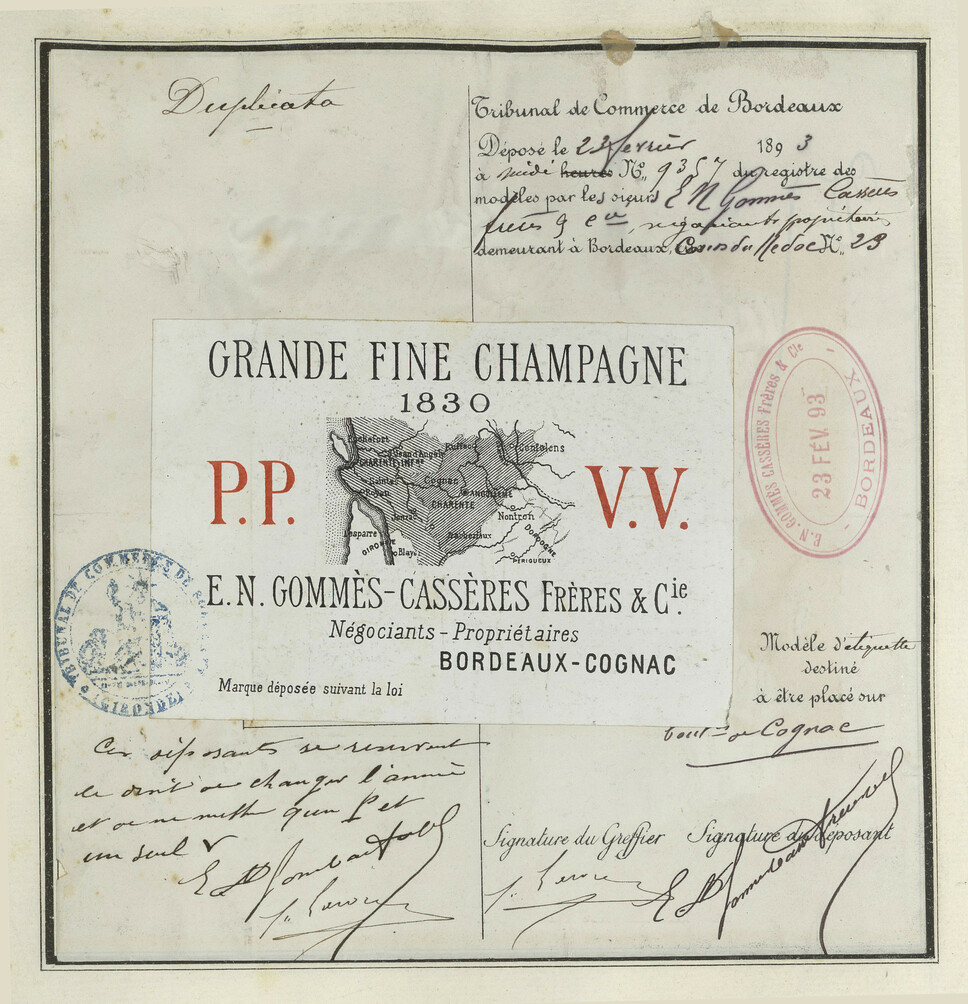 Duplicata
Tribunal de Commerce de Bordeaux
Déposé le 23 février 1893
à midi heures No. 9357 du registre des
modèles par les sieurs E N Gommès Cassères
frères & Cie, négociants propriétaires
demeurant à Bordeaux, Cours du Médoc No. 23
GRANDE FINE CHAMPAGNE
1830
P.P.
V.V.
Rochefort
St Jean d'Angely
Ruffec
Confolens
CHARENTE INFRE
Saintes
Cognac
ANGOULÊME
Royan
CHARENTE
Jonzac
Nontron
Lesparre
GIRONDE
Blaye
Barbezieux
DORDOGNE
PÉRIGUEUX
E.N. GOMMÈS-CASSÈRES FRÈRES & Cie.
Négociants-Propriétaires
BORDEAUX-COGNAC
Marque déposée suivant la loi
E.N. GOMMÈS CASSÈRES Frères & Cie
23 FÉV. 93
- BORDEAUX -
TRIBUNAL DE COMMERCE DE BORDEAUX
(GIRONDE)
Modèle d'étiquette
destiné
à être placé sur
boutlles de Cognac
Les déposants se réservent
le droit de changer l'année
et de ne mettre qu'un P et
un seul V
Signature du Greffier
Signature du déposant